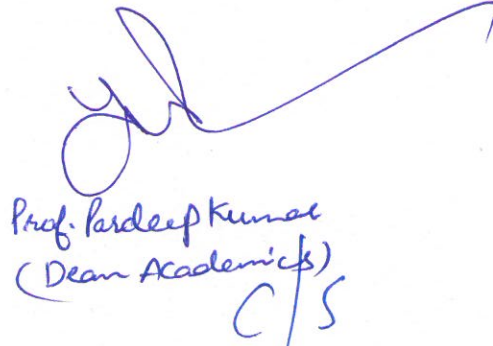 Prof. Pardeep Kumar
(Dean Academics)
C/S